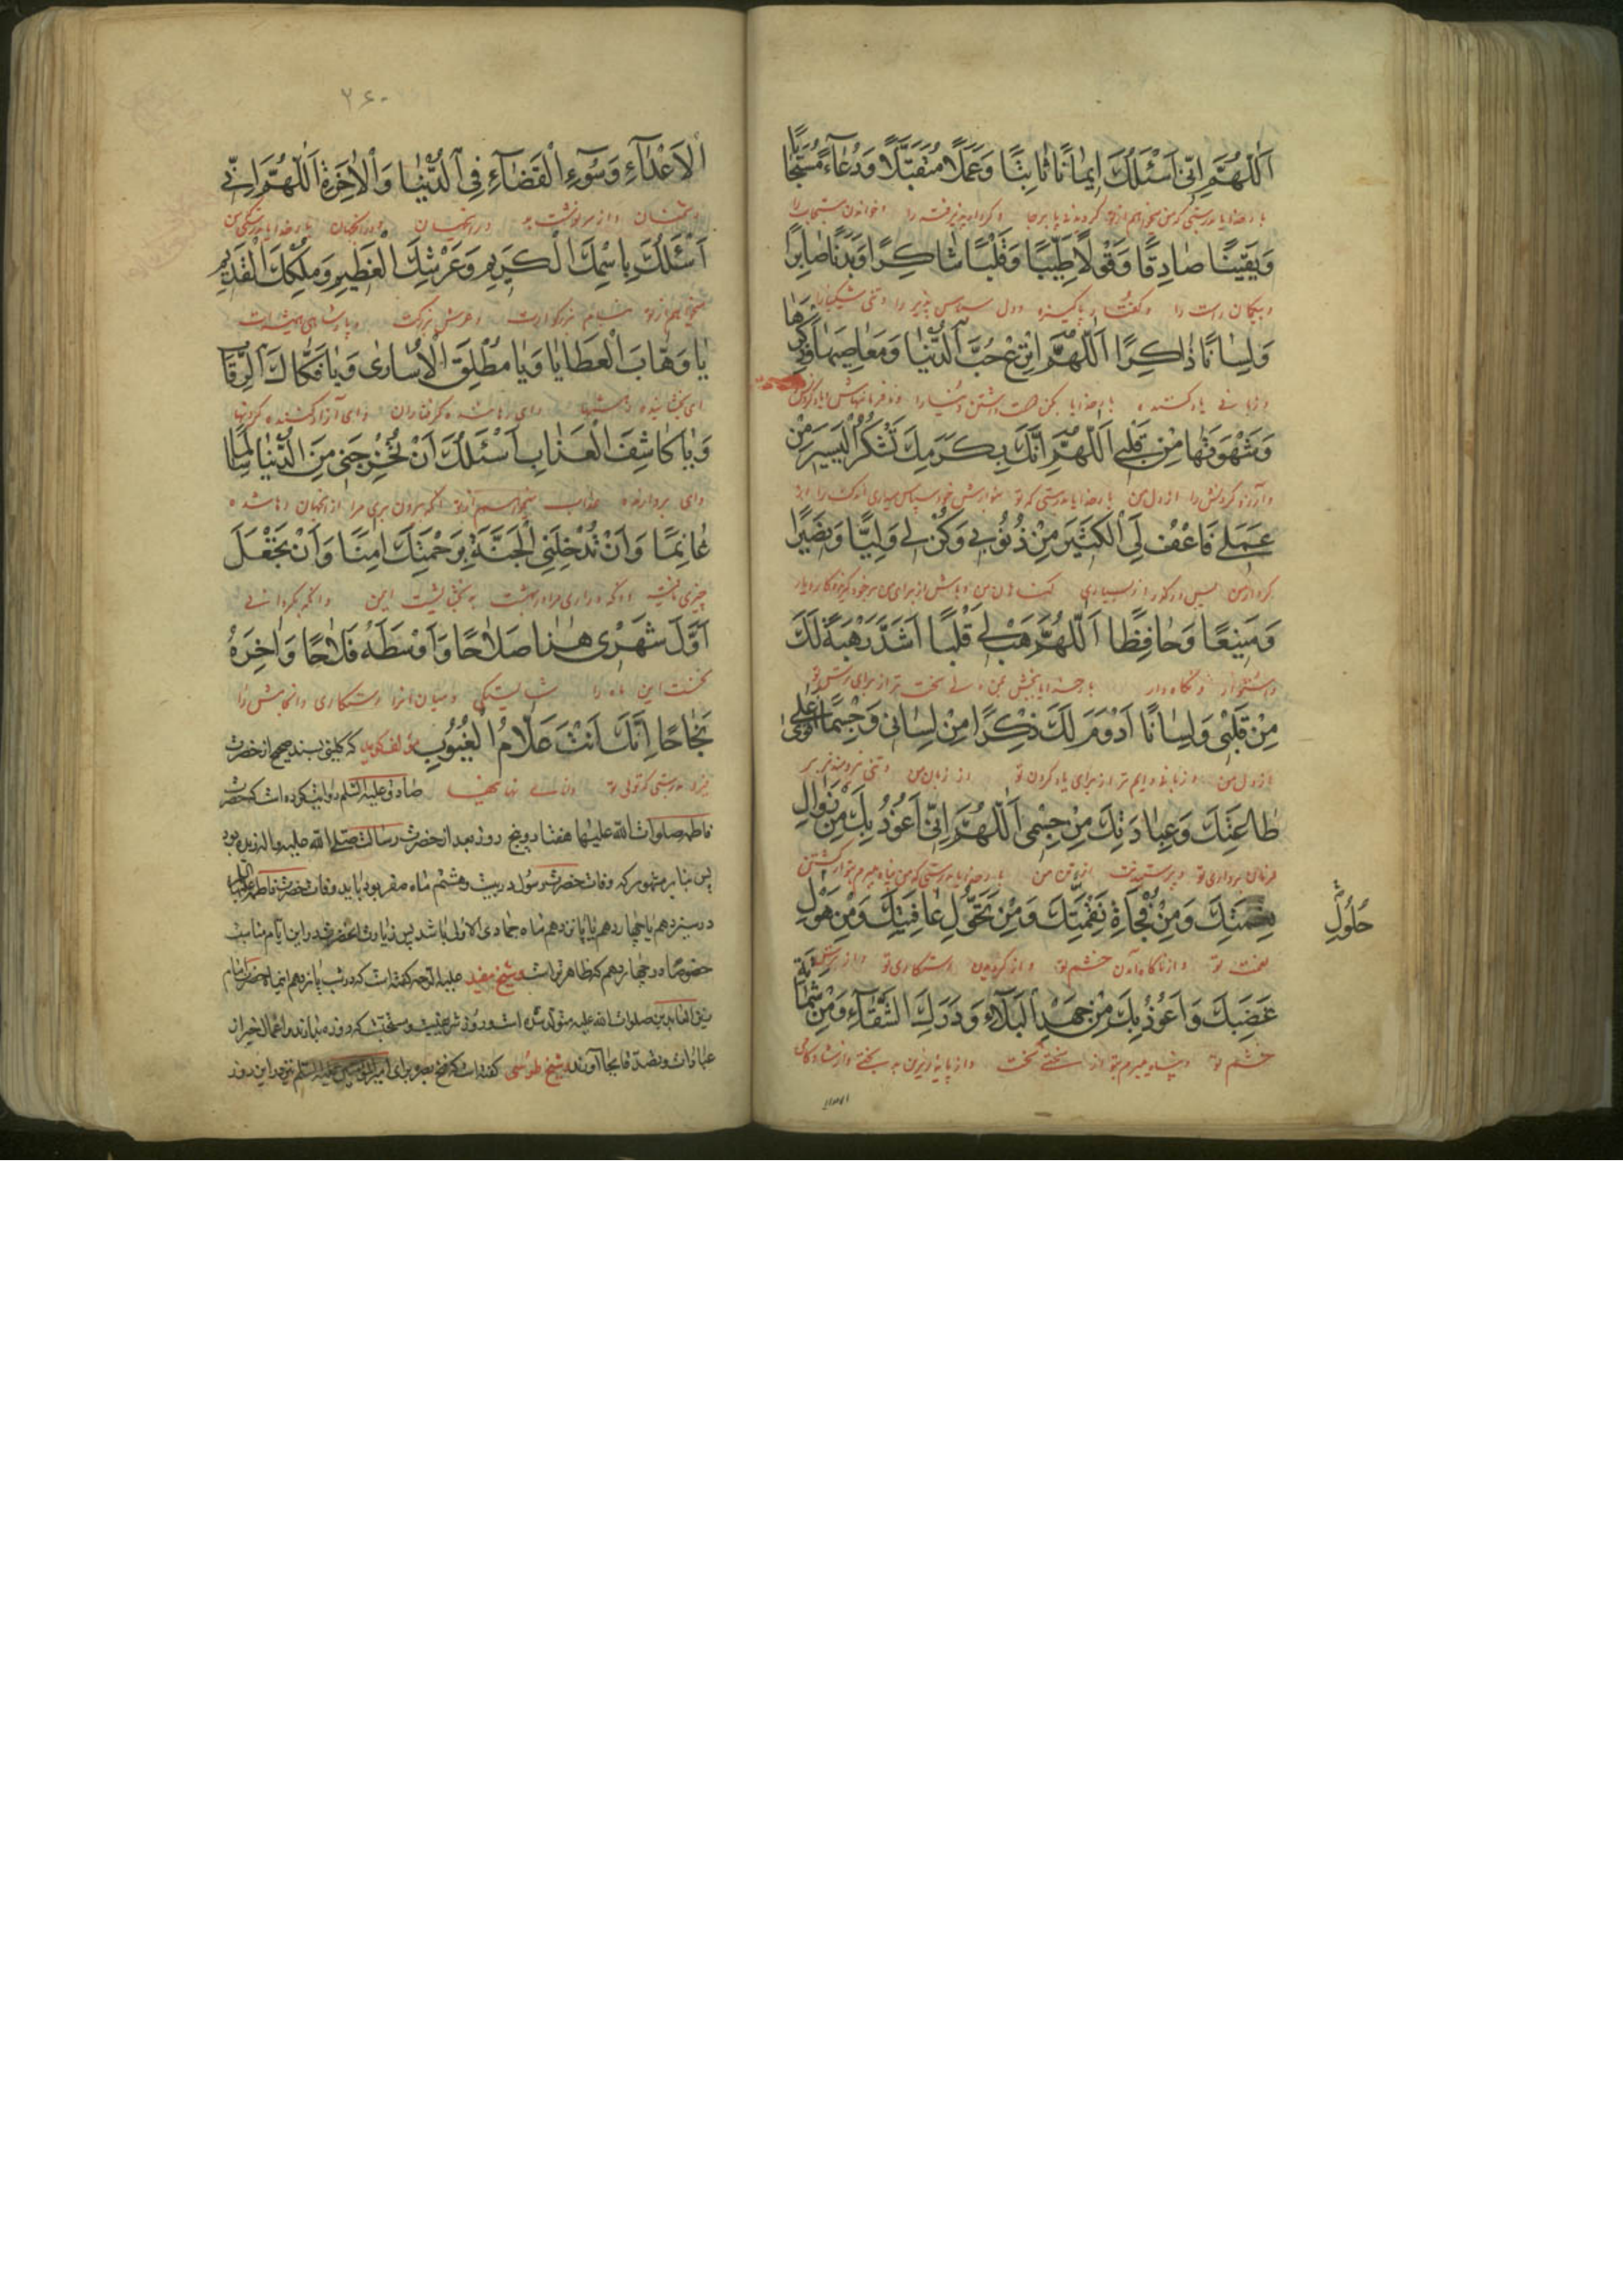 اَللّٰهُمَّ اِنّي اَسْئَلُكَ ايمٰانًا ثٰابِتًا وَعَمَلًا مُتَقَبَّلًا وَدُعٰآءً مُسْتَجٰابًا
بار خدایا بدرستی که من میخواهم از تو کرویدنی پا برجا و کردار پذیرفته را و خواندن مستجاب را
وَيَقينًا صٰادِقًا وَقَوْلًا طَيِّبًا وَقَلْبًا شٰاكِرًا وَبَدَنًا صٰابِرًا
و بیکمان راست را و کفت پاکیزه و دل سپاس پذیر را و تنی شکیبا را
وَلِسٰانًا ذٰاكِرًا اَللّٰهُمَّ انْزِعْ حُبَّ الدُّنْيٰا وَمَعٰاصيهٰا وَذِكْرَهٰا
و زبانی یاد کننده بار خدایا بکن دوست داشتن دنیا را و نافرمانیهاش و یاد کردنش
وَشَهْوَتَهٰا مِنْ قَلْبي اَللّٰهُمَّ اِنَّكَ بِكَرَمِكَ تَشْكُرُ الْيَسيرَ مِنْ
و آرزو کردنش را از دل من بار خدایا بدرستی که تو بنوازش خود سپاس میداری اندک را از
عَمَلي فَاعْفُ لِيَ الْكَثيرَ مِنْ ذُنُوبي وَكُنْ لي وَلِيًّا وَنَصيرًا
کردار من پس در کذر از بسیاری کناهان من و باش از برای من
وَمَنيعًا وَحٰافِظًا اَللّٰهُمَّ هَبْ لي قَلْبًا اَشَدَّ رَهْبَةً لَكَ
و استوار و نگاه دار بار خدایا ببخش بمن دلی سخت تر از برای ترس تو
مِنْ قَلْبي وَلِسٰانًا اَدْوَمَ لَكَ ذِكْرًا مِنْ لِسٰاني وَجِسْمًا اَقْوىٰ عَلىٰ
از دل من و زبانی دایم تر از برای یاد کردن تو از زبان من و تنی نیرومندتر بر
طٰاعَتِكَ وَعِبٰادَتِكَ مِنْ جِسْمي اَللّٰهُمَّ اِنّي اَعُوذُ بِكَ مِنْ زَوٰالِ
فرمان برداری تو و پرستیدنت از تن من بار خدایا بدرستی که من پناه میبرم بتو از کشتن
نِعْمَتِكَ وَمِنْ فُجْاَةِ نَقِمَتِكَ وَمِنْ تَحَوُّلِ عٰافِيَتِكَ وَمِنْ هَوْلِ
حُلُولِ
نعمت تو و از ناکاه آمدن خشم تو و از کردیدن رستکاری تو و از ترس
غَضَبِكَ وَاَعُوذُ بِكَ مِنْ جَهْدِ الْبَلٰآءِ وَدَرَكِ الشَّقٰآءِ وَمِنْ شَمٰاتَةِ
خشم تو و پناه میبرم بتو از سختی سخت و از پایه زیرین بدبختی و از شادکامی
الاعدا
۲۶۰
الْاَعْدٰآءِ وَسُوٓءِ الْقَضٰآءِ فِي الدُّنْيٰا وَالْاٰخِرَةِ اَللّٰهُمَّ اِنّي
دشمنان و از سرنوشت بد در این جهان و در آنجهان بار خدایا بدرستی که من
اَسْئَلُكَ بِاسْمِكَ الْكَريمِ وَعَرْشِكَ الْعَظيمِ وَمُلْكِكَ الْقَديمِ
میخواهم از تو بنام بزرکوارت و عرش بزرکت و پادشاهی همیشه‌ات
يٰا وَهّٰابَ الْعَطٰايٰا وَيٰا مُطْلِقَ الْاُسٰارىٰ وَيٰا فَكّٰاكَ الرِّقٰابِ
ای بخشاینده بخششها و ای رها کننده کرفتاران و ای آزاد کننده کردنها
وَيٰا كٰاشِفَ الْعَذٰابِ اَسْئَلُكَ اَنْ تُخْرِجَني مِنَ الدُّنْيٰا سٰالِمًا
و ای بردارنده عذاب میخواهم از تو که بیرون بری مرا از اینجهان رها شده
غٰانِمًا وَاَنْ تُدْخِلَنِي الْجَنَّةَ بِرَحْمَتِكَ اٰمِنًا وَاَنْ تَجْعَلَ
چیزی یافته و آنکه در آری مرا در بهشت به بخشایشت ایمن و آنکه بکردانی
اَوَّلَ شَهْري هٰذٰا صَلٰاحًا وَاَوْسَطَهُ فَلٰاحًا وَاٰخِرَهُ
نخست این ماه را شایستگی و میان آنرا رستکاری و انجامش را
نَجٰاحًا اِنَّكَ اَنْتَ عَلّٰامُ الْغُيُوبِ مؤلف کوید که کلینی بسند صحیح از حضرت
فیروزی بدرستی که توئی تو دانای نهانیها صادق علیه السلم روایت کرده است که حضرت
فاطمه صلوات الله علیها هفتاد و پنج روز بعد از حضرت رسالت صلی الله علیه و اله زنده بود
پس بنا بر مشهور که وفات حضرت رسول در بیست و هشتم ماه صفر بود باید وفات حضرت فاطمه علیها السلم
در سیزدهم یا چهاردهم یا پانزدهم ماه جمادی الاولی باشد پس زیارت آنحضرت در این ایام مناسبست
خصوصا در چهاردهم که ظاهرتر است و شیخ مفید علیه الرحمه کفته است که در شب پانزدهم این ماه حضرت امام
زین العابدین صلوات الله علیه متولد شده است و روز شریفیست و سنتست که روزه بدارند و اعمال خیر از
عبادات و تصدقات بجا آورند و شیخ طوسی کفته است که فتح بصره برای امیر المؤمنین علیه السلم نیز در این روز